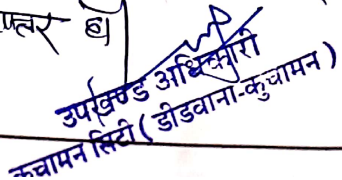 प्तर हो
उपखण्ड अधिकारी
कुचामन सिटी (डीडवाना-कुचामन)